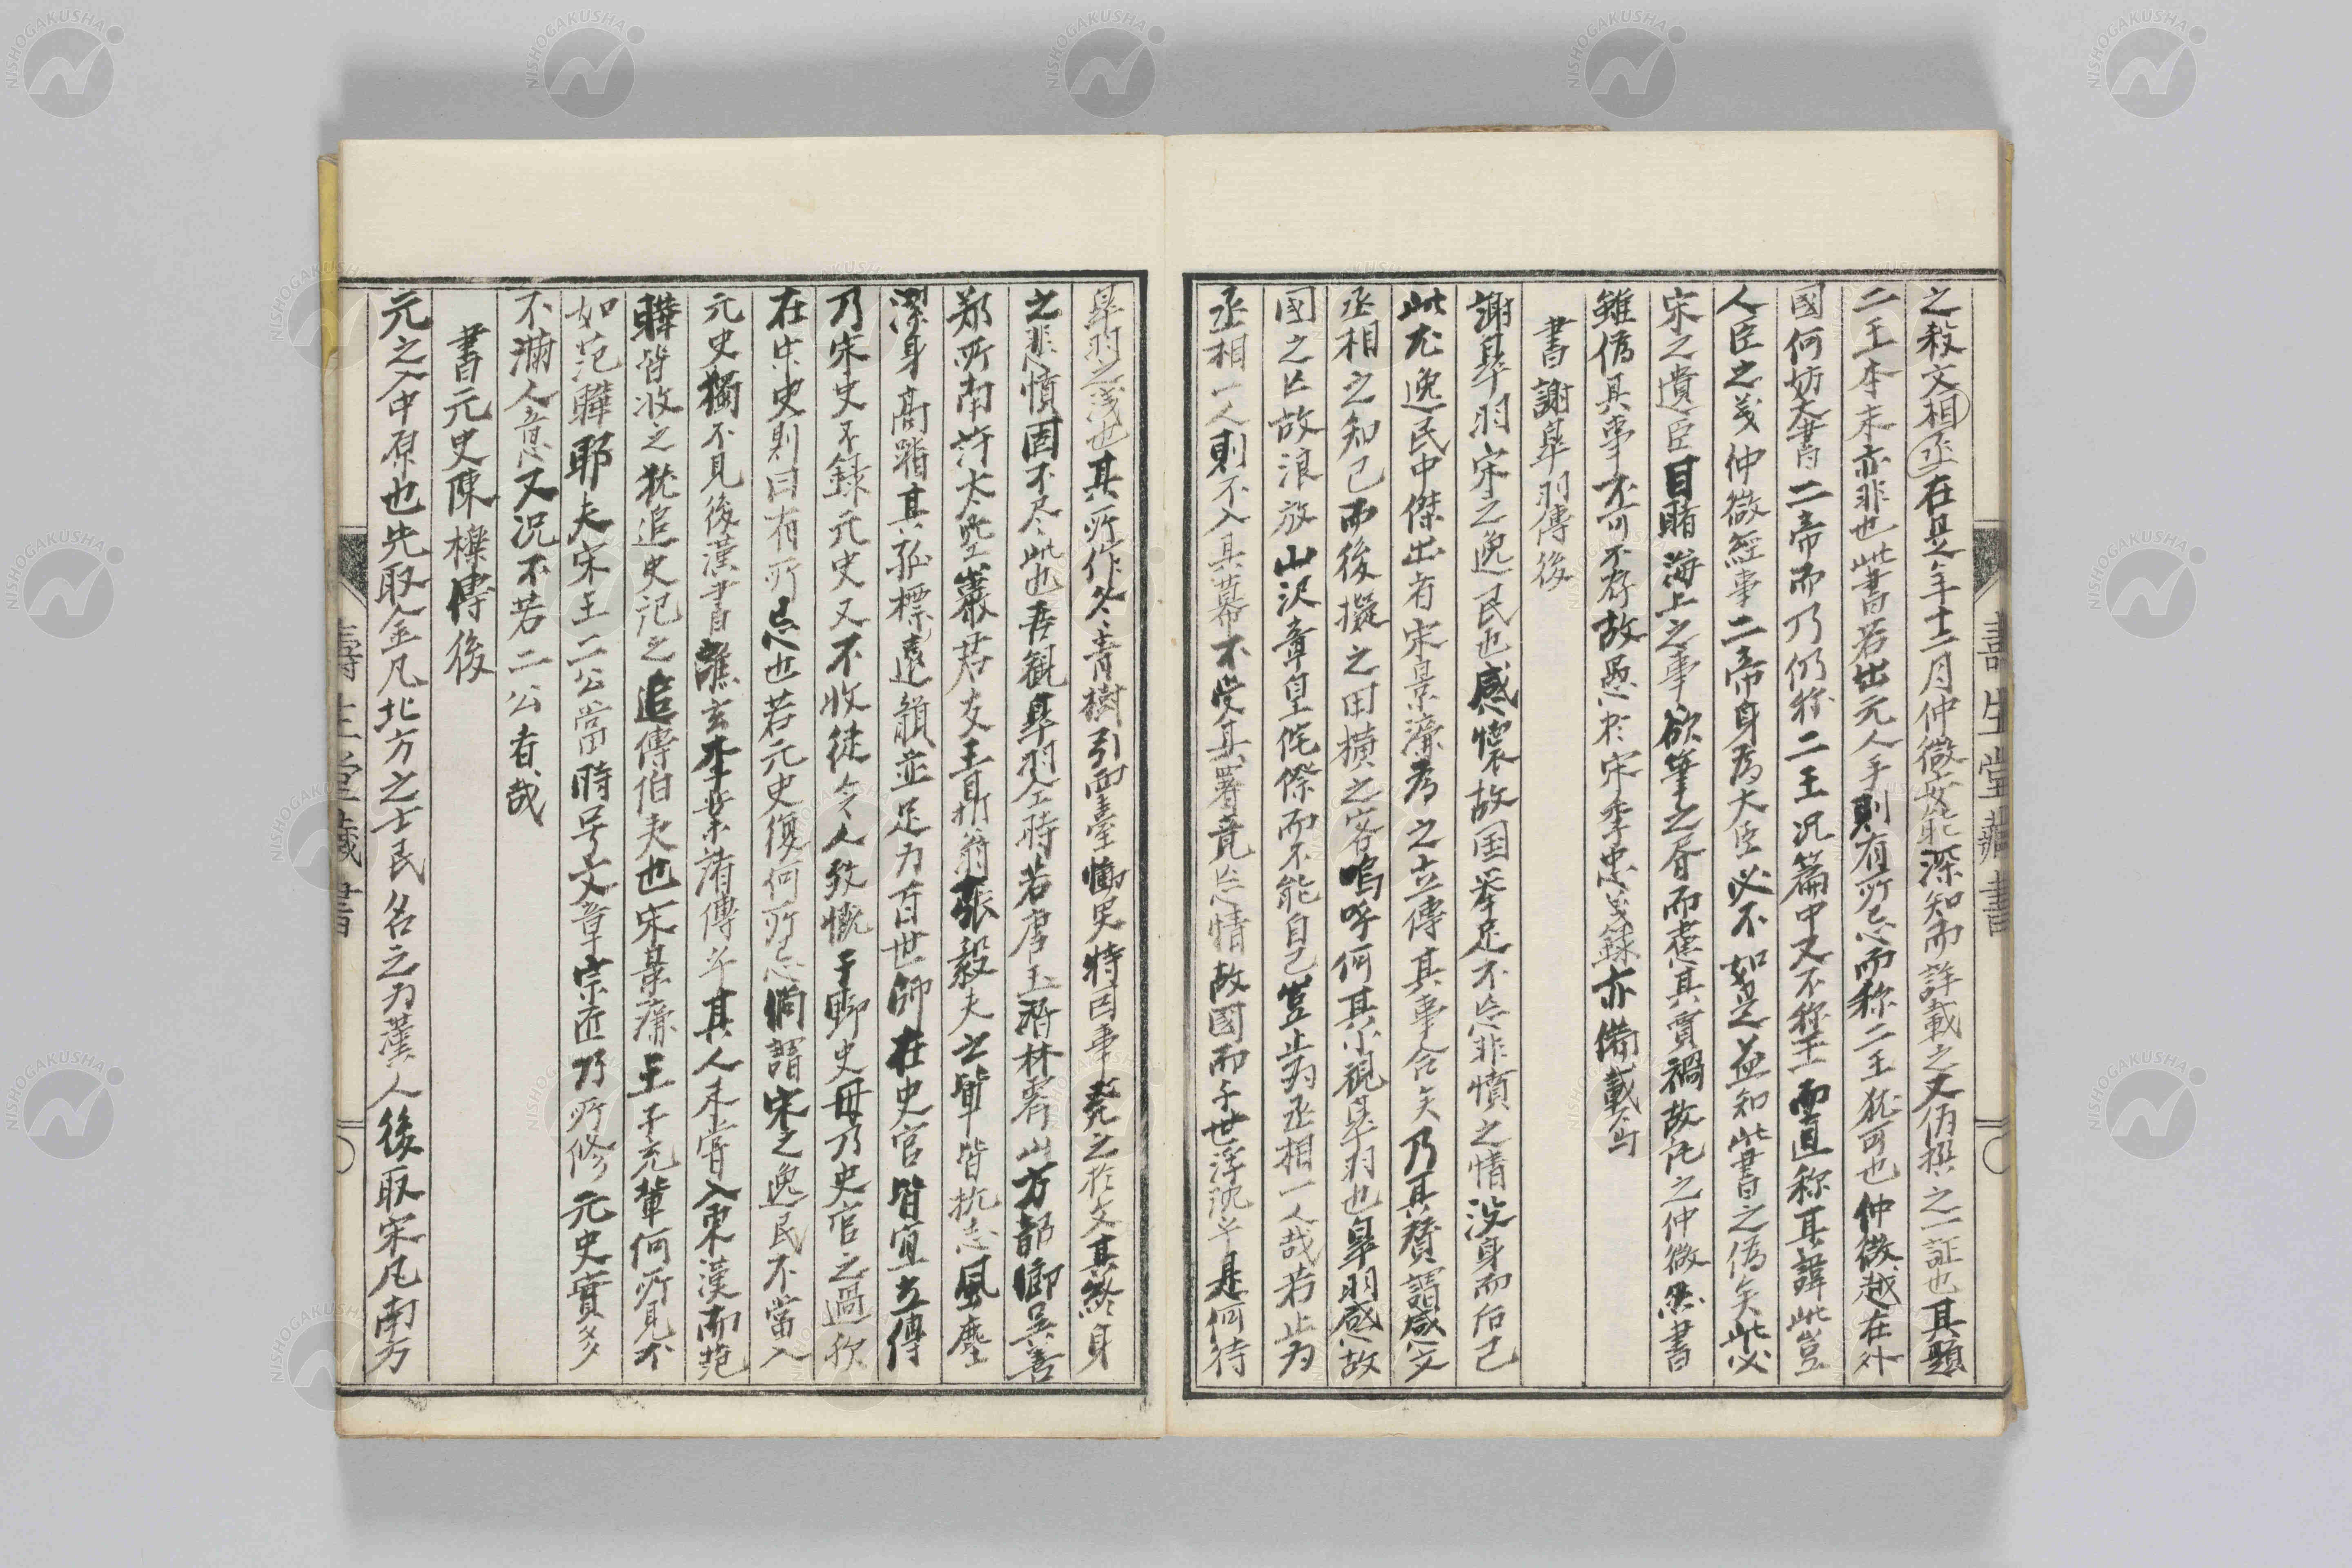 之殺文相丞在是年十二月仲微安能深知而詳載之又偽撰之一証也其題
二王本末亦非也此書若出元人手則有所忌而称二王猶可也仲微越在外
國何妨大書二帝而乃仍称二王况篇中又不称王而直称其諱此豈
人臣之義仲微經事二帝身為大臣必不如是益知此書之偽矣此必
宋之遺臣目睹海上之事欲筆之層而慮其賈禍故托之仲微然書
雖偽其事不可不存故愚於宋季忠義錄亦備載
書謝皐羽傳後
謝皐羽宋之逸民也感懷故国举足不忘悲憤之情没身而后已
此尤逸民中傑出者宋景濂為之立傳其事合矣乃其賛謂感文
丞相之知己而後擬之田横之客嗚呼何其小視皐羽也皐羽感故
國之亡故浪放山沢章皇侘傺而不能自已豈止為丞相一人哉若止为
丞相一人則不入其幕不受其署竟忘情故國而于世浮沈乎是何待
皐羽之浅也其所作冬青樹引西臺慟哭特因事発之於文其終身
之悲憤固不尽此也吾観皐羽仝時若唐玉潛林霽山方韶卿吴善
鄭所南許太空嚴若友王鼎翁張毅夫之輩皆抗志風塵
潔身高蹈其孤標遠韻並足为百世師在史官皆宜立傳
乃宋史不錄元史又不收徒令人致慨于野史毋乃史官之過歟
在宋史則曰有所忌也若元史復何所忌倘謂宋之逸民不當入
元史獨不見後漢書譙玄李業諸傳乎其人未嘗入東漢而范
曄皆收之犹追史記之追傳伯夷也宋景濂王子充輩何所見不
如范曄耶夫宋王二公當時号文章宗匠乃所修元史實多
不滿人意又况不若二公者哉
書元史陳櫟傳後
元之入中原也先取金凡北方之士民名之为漢人後取宋凡南方
壽生堂藏書